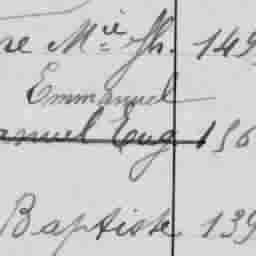 re Mie Jh. 149
Emmanuel
anuel Eug 156
Baptiste 139